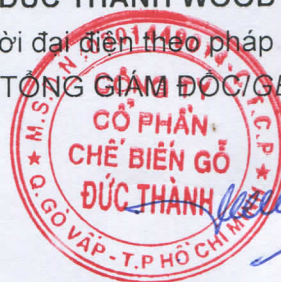 ĐỨC THÀNH WOOD
ời đại điện theo pháp
TỔNG GIÁM ĐỐC/GE
CÔNG TY
CỔ PHẦN
CHẾ BIẾN GỖ
ĐỨC THÀNH
Q. GÒ VẤP - T.P HỒ CHÍ MINH